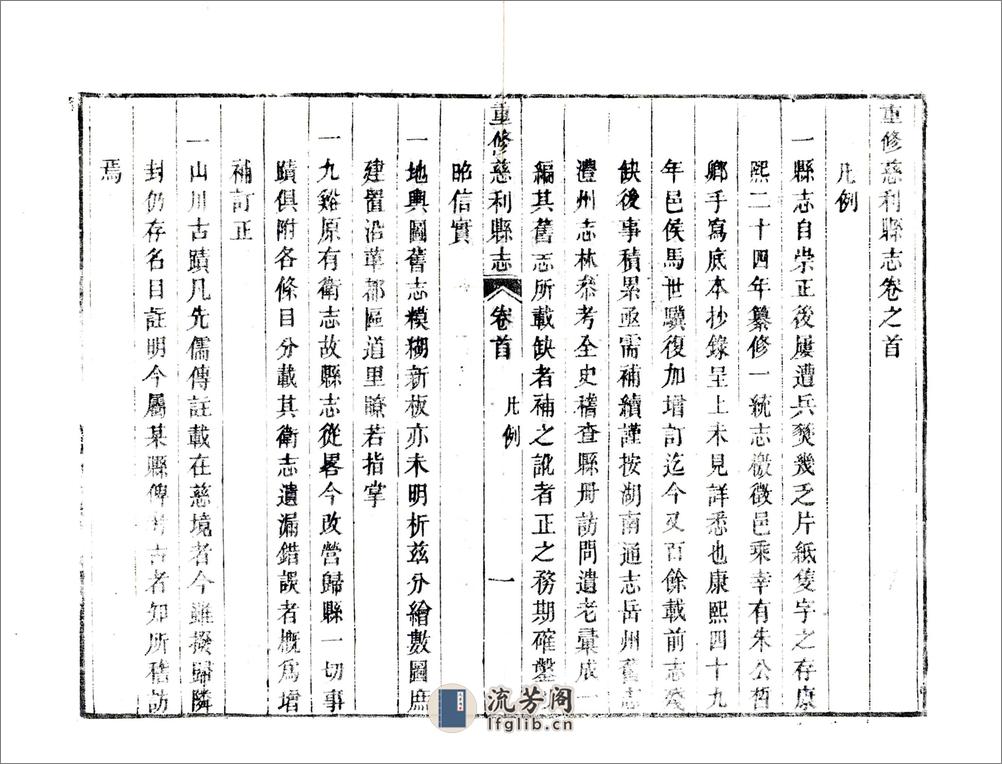 重修慈利縣志卷之首
凡例
一縣志自崇正後屢遭兵燹幾乏片紙隻字之存康
熙二十四年纂修一統志檄徵邑乘幸有朱公哲
鄉手寫底本抄錄呈上未見詳悉也康熙四十九
年邑侯馬世驥復加增訂迄今又百餘載前志殘
缺後事積累亟需補續謹按湖南通志岳州舊志
澧州志林叅考全史稽查縣冊訪問遺老彙成一
編其舊志所載缺者補之訛者正之務期確鑿
昭信實
重修慈利縣志
卷首
凡例
一
一地輿圖舊志模糊新板亦未明析茲分繪數圖庶
建置沿革都區道里瞭若指掌
一九谿原有衛志故縣志從畧今改營歸縣一切事
蹟俱附各條目分載其衛志遺漏錯誤者概爲增
補訂正
一山川古蹟凡先儒傳註載在慈境者今雖撥歸隣
封仍存名目註明今屬某縣俾古者知所稽訪
焉
流芳阁
lfglib.cn